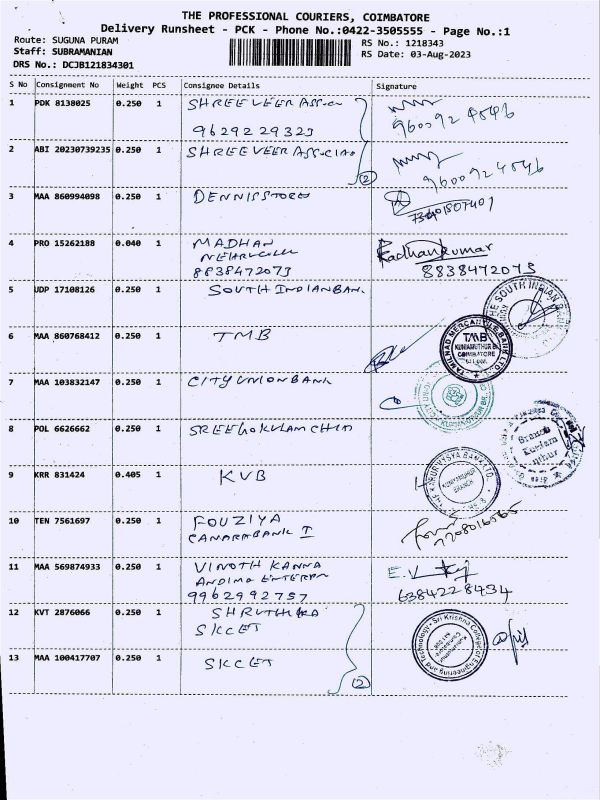 THE PROFESSIONAL COURIERS, COIMBATORE
Delivery Runsheet - PCK - Phone No.:0422-3505555 - Page No.:1
Route: SUGUNA PURAM
RS No.: 1218343
Staff: SUBRAMANIAN
RS Date: 03-Aug-2023
DRS No.: DCJB121834301
S No Consignment No Weight PCS Consignee Details Signature
1 PDK 8138025 0.250 1 SHREEVEER
9629229323
2 ABI 20230739235 0.250 1 SHREEVEER
(2)
3 MAA 860994098 0.250 1 DENNISSTORES
4 PRO 15262188 0.040 1 MADHAN Radhankumar
8838472073 8838472073
5 UDP 17108126 0.250 1 SOUTHINDIANBAN THE SOUTH INDIAN BANK
6 MAA 860768412 0.250 1 TMB TAMILNAD MERCANTILE BANK LTD.
TMB
KUNIAMUTHUR BR.
COIMBATORE
7 MAA 103832147 0.250 1 CITYUNIONBANK CITY UNION KUNIAMUTHUR BR.
8 POL 6626662 0.250 1 SREEGOKULAM CHIT Branch
9 KRR 831424 0.405 1 KVB THE KARUR VYSYA BANK LTD.
KUNIYAMUTHUR
BRANCH
10 TEN 7561697 0.250 1 FOUZIYA
CANARABANK I 7708016565
11 MAA 569874933 0.250 1 VINOTH KANNA
9962992757 6384228434
12 KVT 2876066 0.250 1 SHRUTHIKA
SKCET Sri Krishna College of Engineering and Technology
13 MAA 100417707 0.250 1 SKCET
(2)